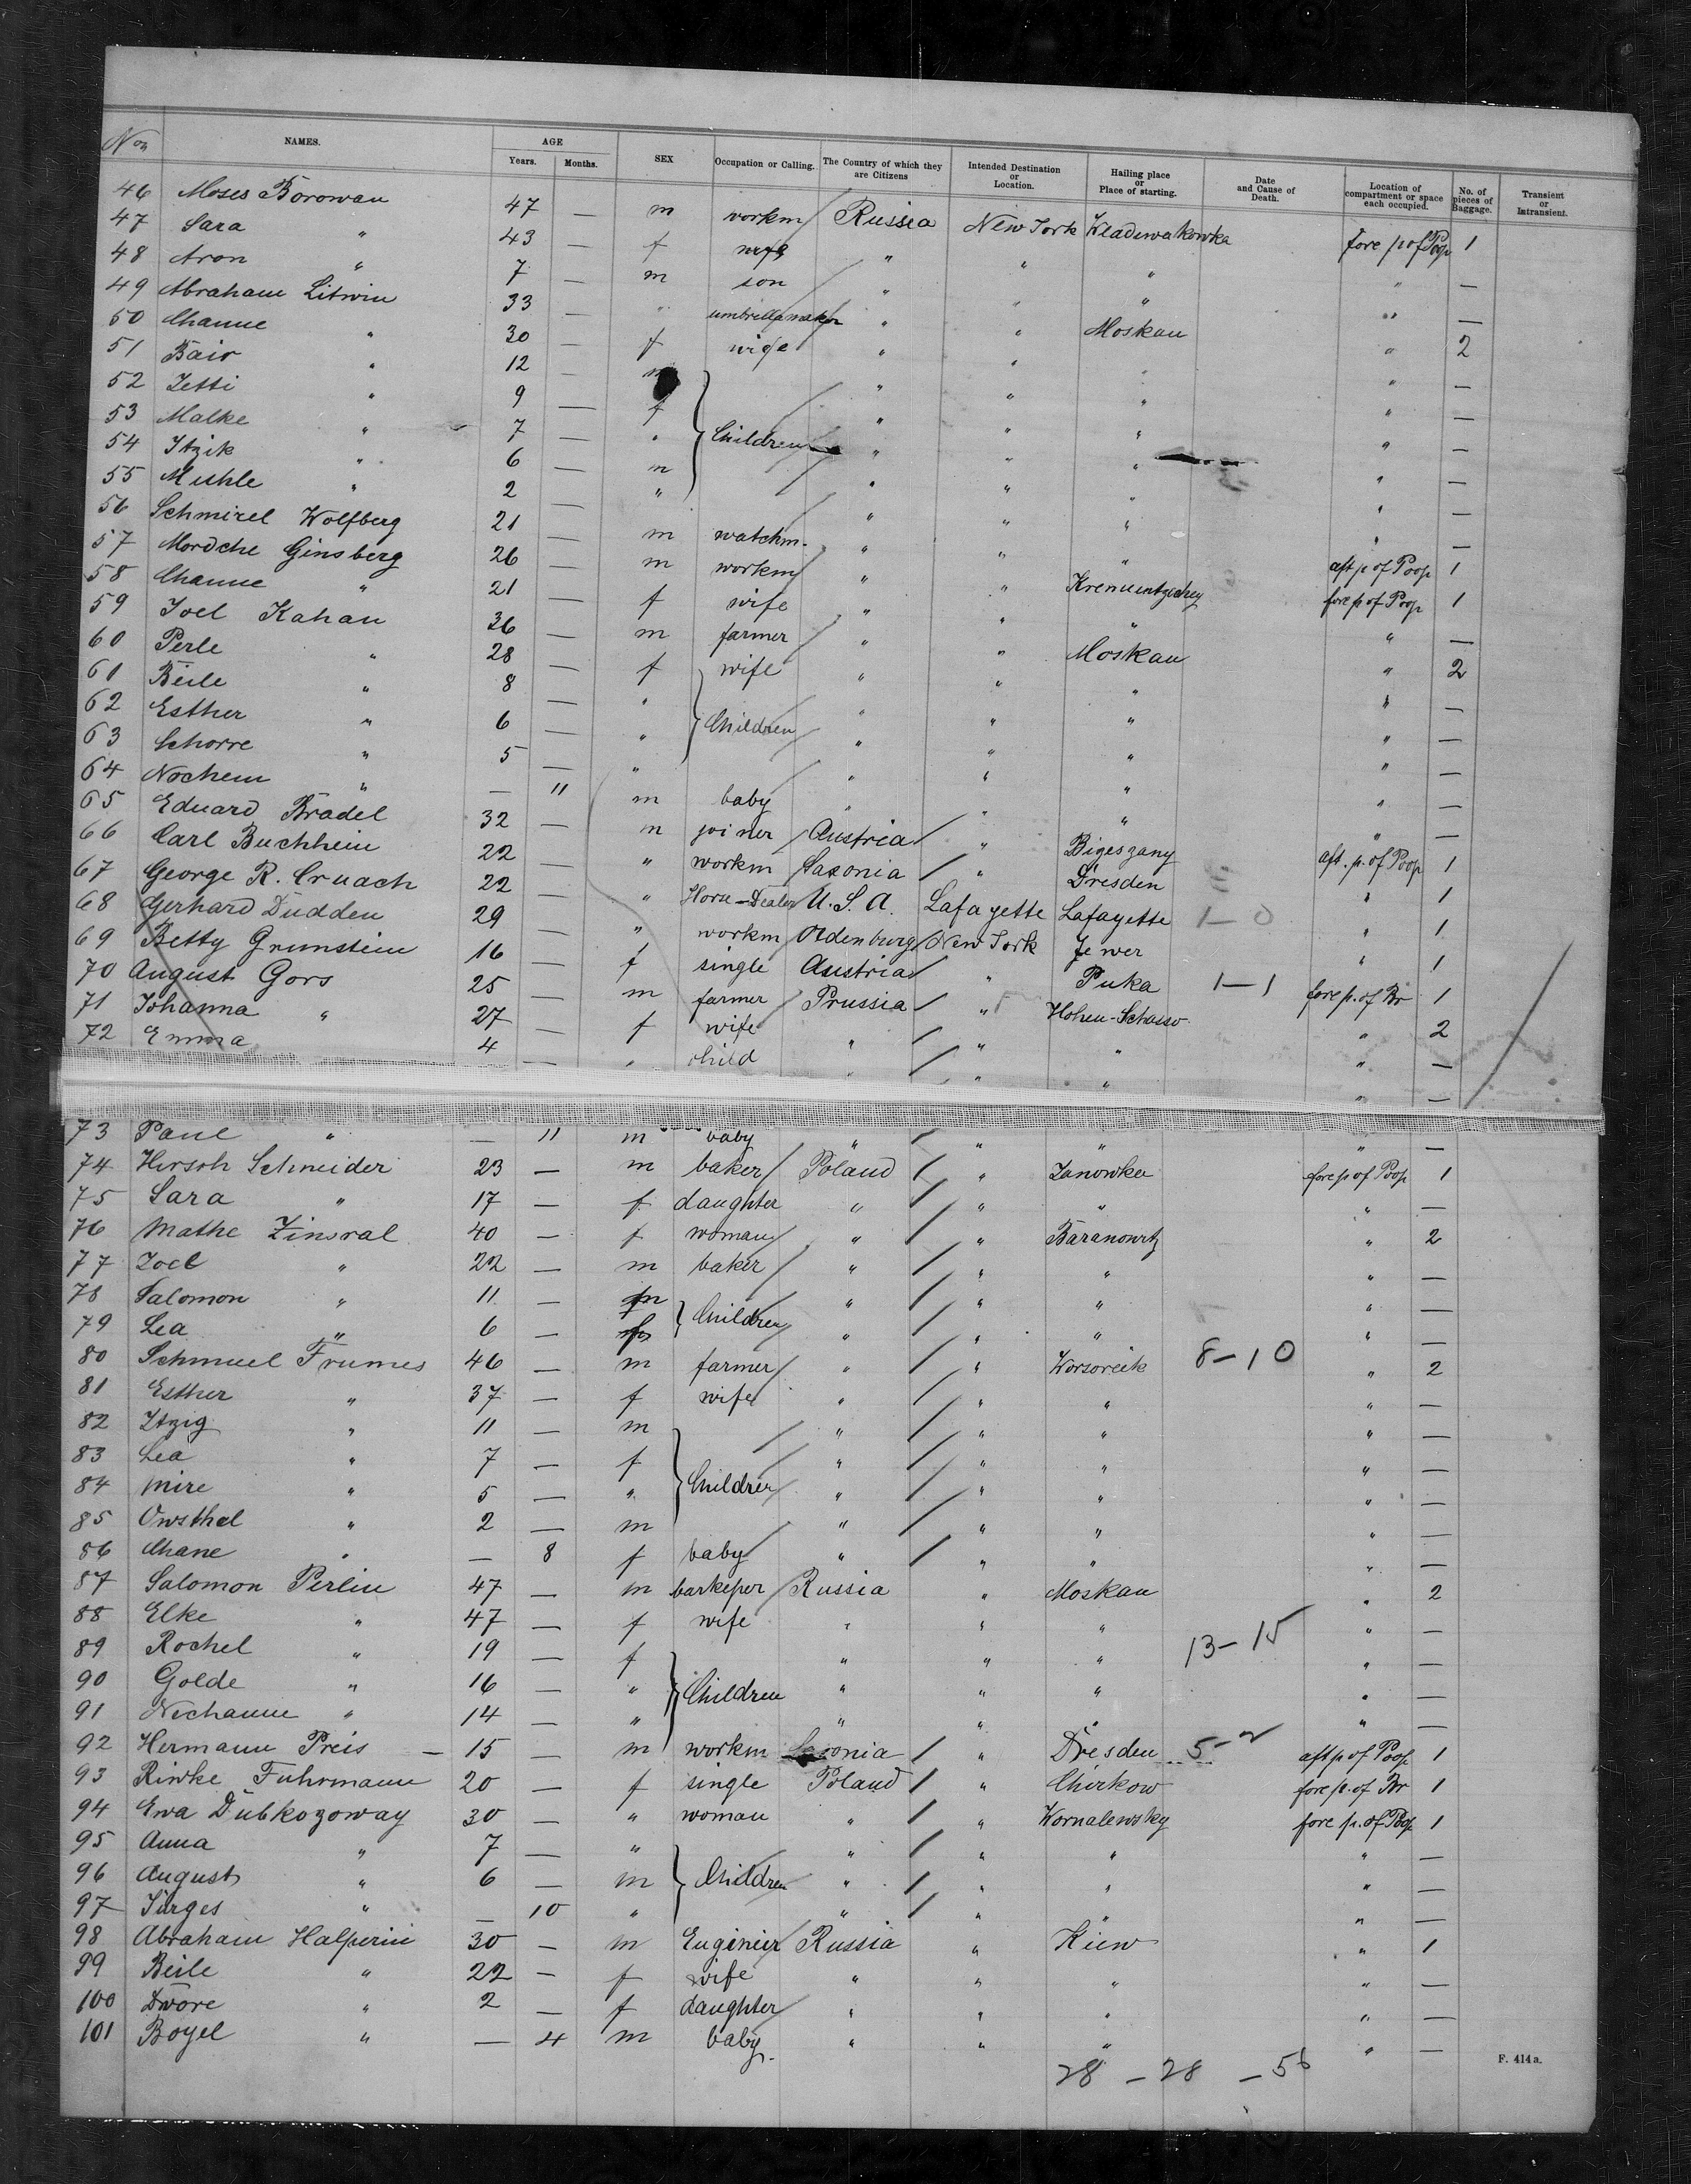 Nos NAMES. AGE Years. Months. SEX Occupation or Calling. The Country of which they are Citizens Intended Destination or Location. Hailing place or Place of starting. Date and Cause of Death. Location of compartment or space each occupied. No. of pieces of Baggage. Transient or Intransient.
46 Moses Borowan 47 — m workm Russia New York Wladiwakowka fore p of Poop 1
47 Sara " 43 — f wife " " " " —
48 Aron " 7 — m son " " " " —
49 Abraham Litwin 33 — " umbrellamaker " " Moskau " 2
50 Channe " 30 — f wife " " " " —
51 Bair " 12 — m " " " " —
52 Zetti " 9 — f " " " " —
53 Malke " 7 — " Children " " " " —
54 Itzik " 6 — m " " " " —
55 Michle " 2 — " " " " " —
56 Schmirel Wolfberg 21 — m watchm. " " " aft p of Poop 1
57 Mordche Ginsberg 26 — m workm " " Krementzschey fore p of Poop 1
58 Channe " 21 — f wife " " " " —
59 Joel Kahan 36 — m farmer " " Moskau " 2
60 Perle " 28 — f wife " " " " —
61 Beile " 8 — " " " " " —
62 Esther " 6 — " Children " " " " —
63 Schorre " 5 — " " " " " —
64 Nochem " — 11 m baby " " " " —
65 Eduard Bradel 32 — m joiner Austria " Bigeszany aft. p. of Poop 1
66 Carl Buchheim 22 — " workm Saxonia " Dresden " 1
67 George R. Cruach 22 — " Horse-Dealer U.S.A. Lafayette Lafayette 1-0 " 1
68 Gerhard Dudden 29 — " workm Oldenburg New York Jewer " 1
69 Betty Grunstein 16 — f single Austria " Puka 1-1 fore p. of Br 1
70 August Gors 25 — m farmer Prussia " Hohen-Schasso " 2
71 Johanna " 27 — f wife " " " " —
72 Emma 4 — " child " " " " —
73 Paul " — 11 m baby " " " " —
74 Hirsch Schneider 23 — m baker Poland " Janowka fore p of Poop 1
75 Sara " 17 — f daughter " " " " —
76 Mathe Zinsral 40 — f woman " " Baranowitz " 2
77 Joel " 22 — m baker " " " " —
78 Salomon " 11 — m Children " " " " —
79 Lea " 6 — f " " " " —
80 Schmuel Frumes 46 — m farmer " " Worsoreik 8-10 " 2
81 Esther " 37 — f wife " " " " —
82 Itzig " 11 — m " " " " —
83 Lea " 7 — f " " " " —
84 Mire " 5 — " Children " " " " —
85 Owsthel " 2 — m " " " " —
86 Chane " — 8 f baby " " " " —
87 Salomon Perlin 47 — m barkeper Russia " Moskau " 2
88 Elke " 47 — f wife " " " " —
89 Rochel " 19 — f " " " 13-15 " —
90 Golde " 16 — " Children " " " " —
91 Nechamme " 14 — " " " " " —
92 Hermann Preis — 15 — m workm Saxonia " Dresden 5-2 aft p of Poop 1
93 Riwke Fuhrmann 20 — f single Poland " Chirkow fore p. of Br 1
94 Ewa Dubkozoway 30 — " woman " " Wornalewsky fore p. of Poop 1
95 Anna " 7 — " " " " " —
96 August " 6 — m Children " " " " —
97 Jürges " — 10 " " " " " —
98 Abraham Halperin 30 — m Enginier Russia " Kiew " 1
99 Beile " 22 — f wife " " " " —
100 Dwore " 2 — f daughter " " " " —
101 Boyel " — 4 m baby. " " " " —
28 — 28 — 56
F. 414a.